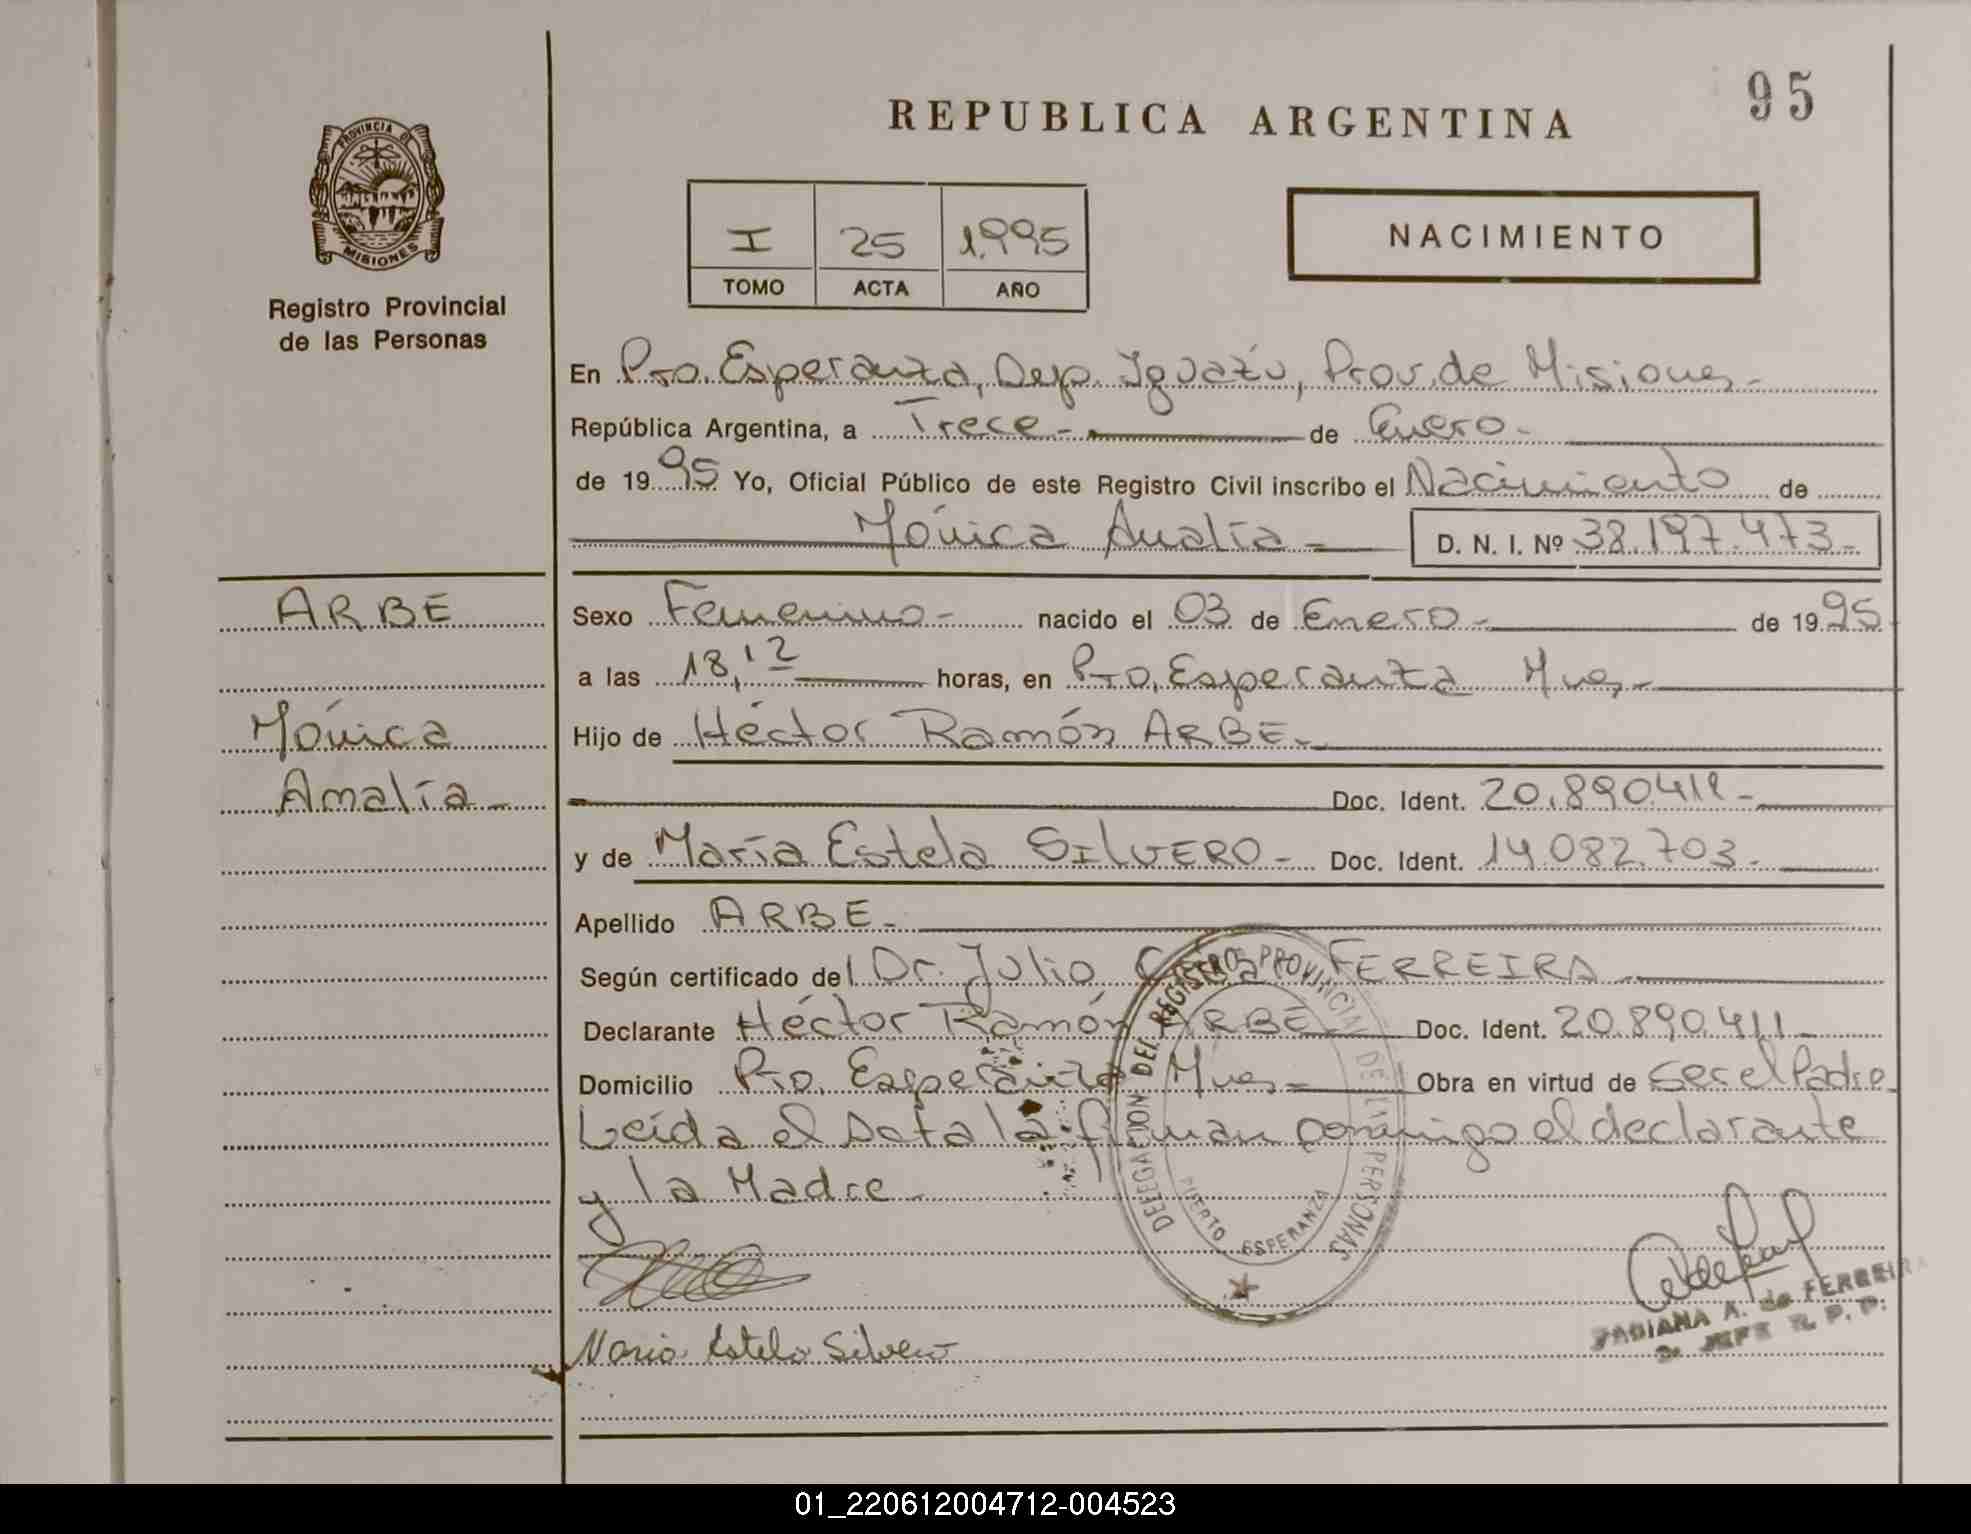 95
REPUBLICA ARGENTINA
PROVINCIA DE
MISIONES
Registro Provincial
de las Personas
I 25 1.995
TOMO ACTA AÑO
NACIMIENTO
En Pto. Esperanza, Dep. Iguazú, Prov. de Misiones-
República Argentina, a Trece- de Enero-
de 1995 Yo, Oficial Público de este Registro Civil inscribo el Nacimiento de
Mónica Analía- D. N. I. Nº 38.197.473-
ARBE
Mónica
Amalía-
Sexo Femenino- nacido el 03 de Enero- de 1995
a las 18,12 horas, en Pto. Esperanza Mnes-
Hijo de Héctor Ramón ARBE-
Doc. Ident. 20.890.411-
y de María Estela SILVERO- Doc. Ident. 14.082.703-
Apellido ARBE-
Según certificado del Dr. Julio FERREIRA
Declarante Héctor Ramón ARBE Doc. Ident. 20.890.411-
Domicilio Pto. Esperanza Mnes- Obra en virtud de ser el Padre
Leída el Acta la firman conmigo el declarante
y la Madre-
DELEGACION DEL REGISTRO PROVINCIAL DE LAS PERSONAS
PUERTO ESPERANZA
Maria Estela Silvero
FABIANA A. de FERREIRA
JEFE R. P. P.
01_220612004712-004523